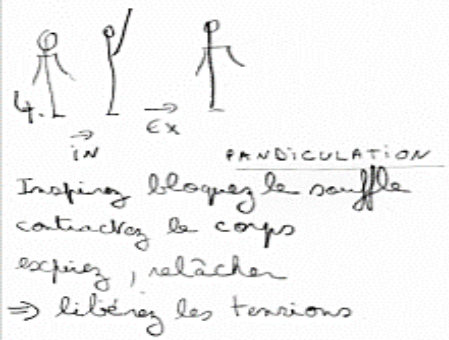 4.
→ IN
→ EX
PANDICULATION
Inspirez bloquez le souffle
contractez le corps
expirez, relâcher
⇒ libérez les tensions